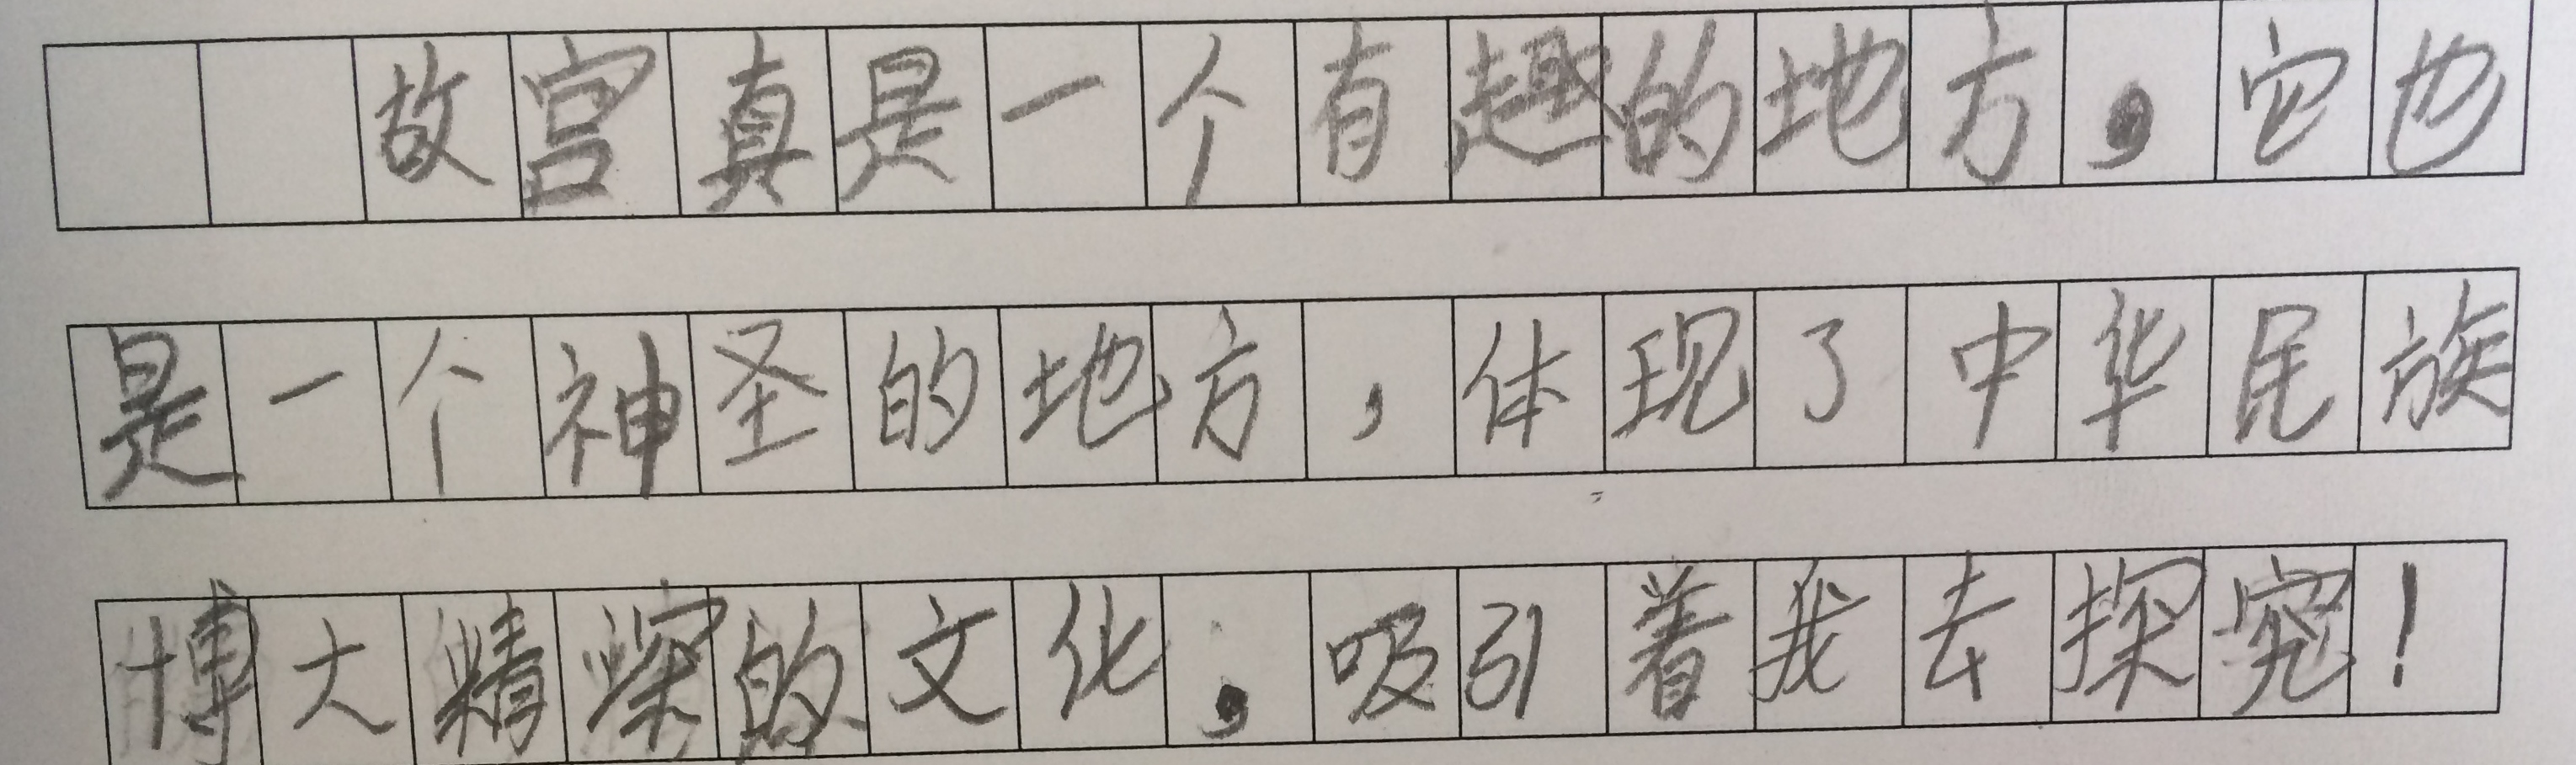 故宫真是一个有趣的地方，它也
是一个神圣的地方，体现了中华民族
博大精深的文化，吸引着我去探究！